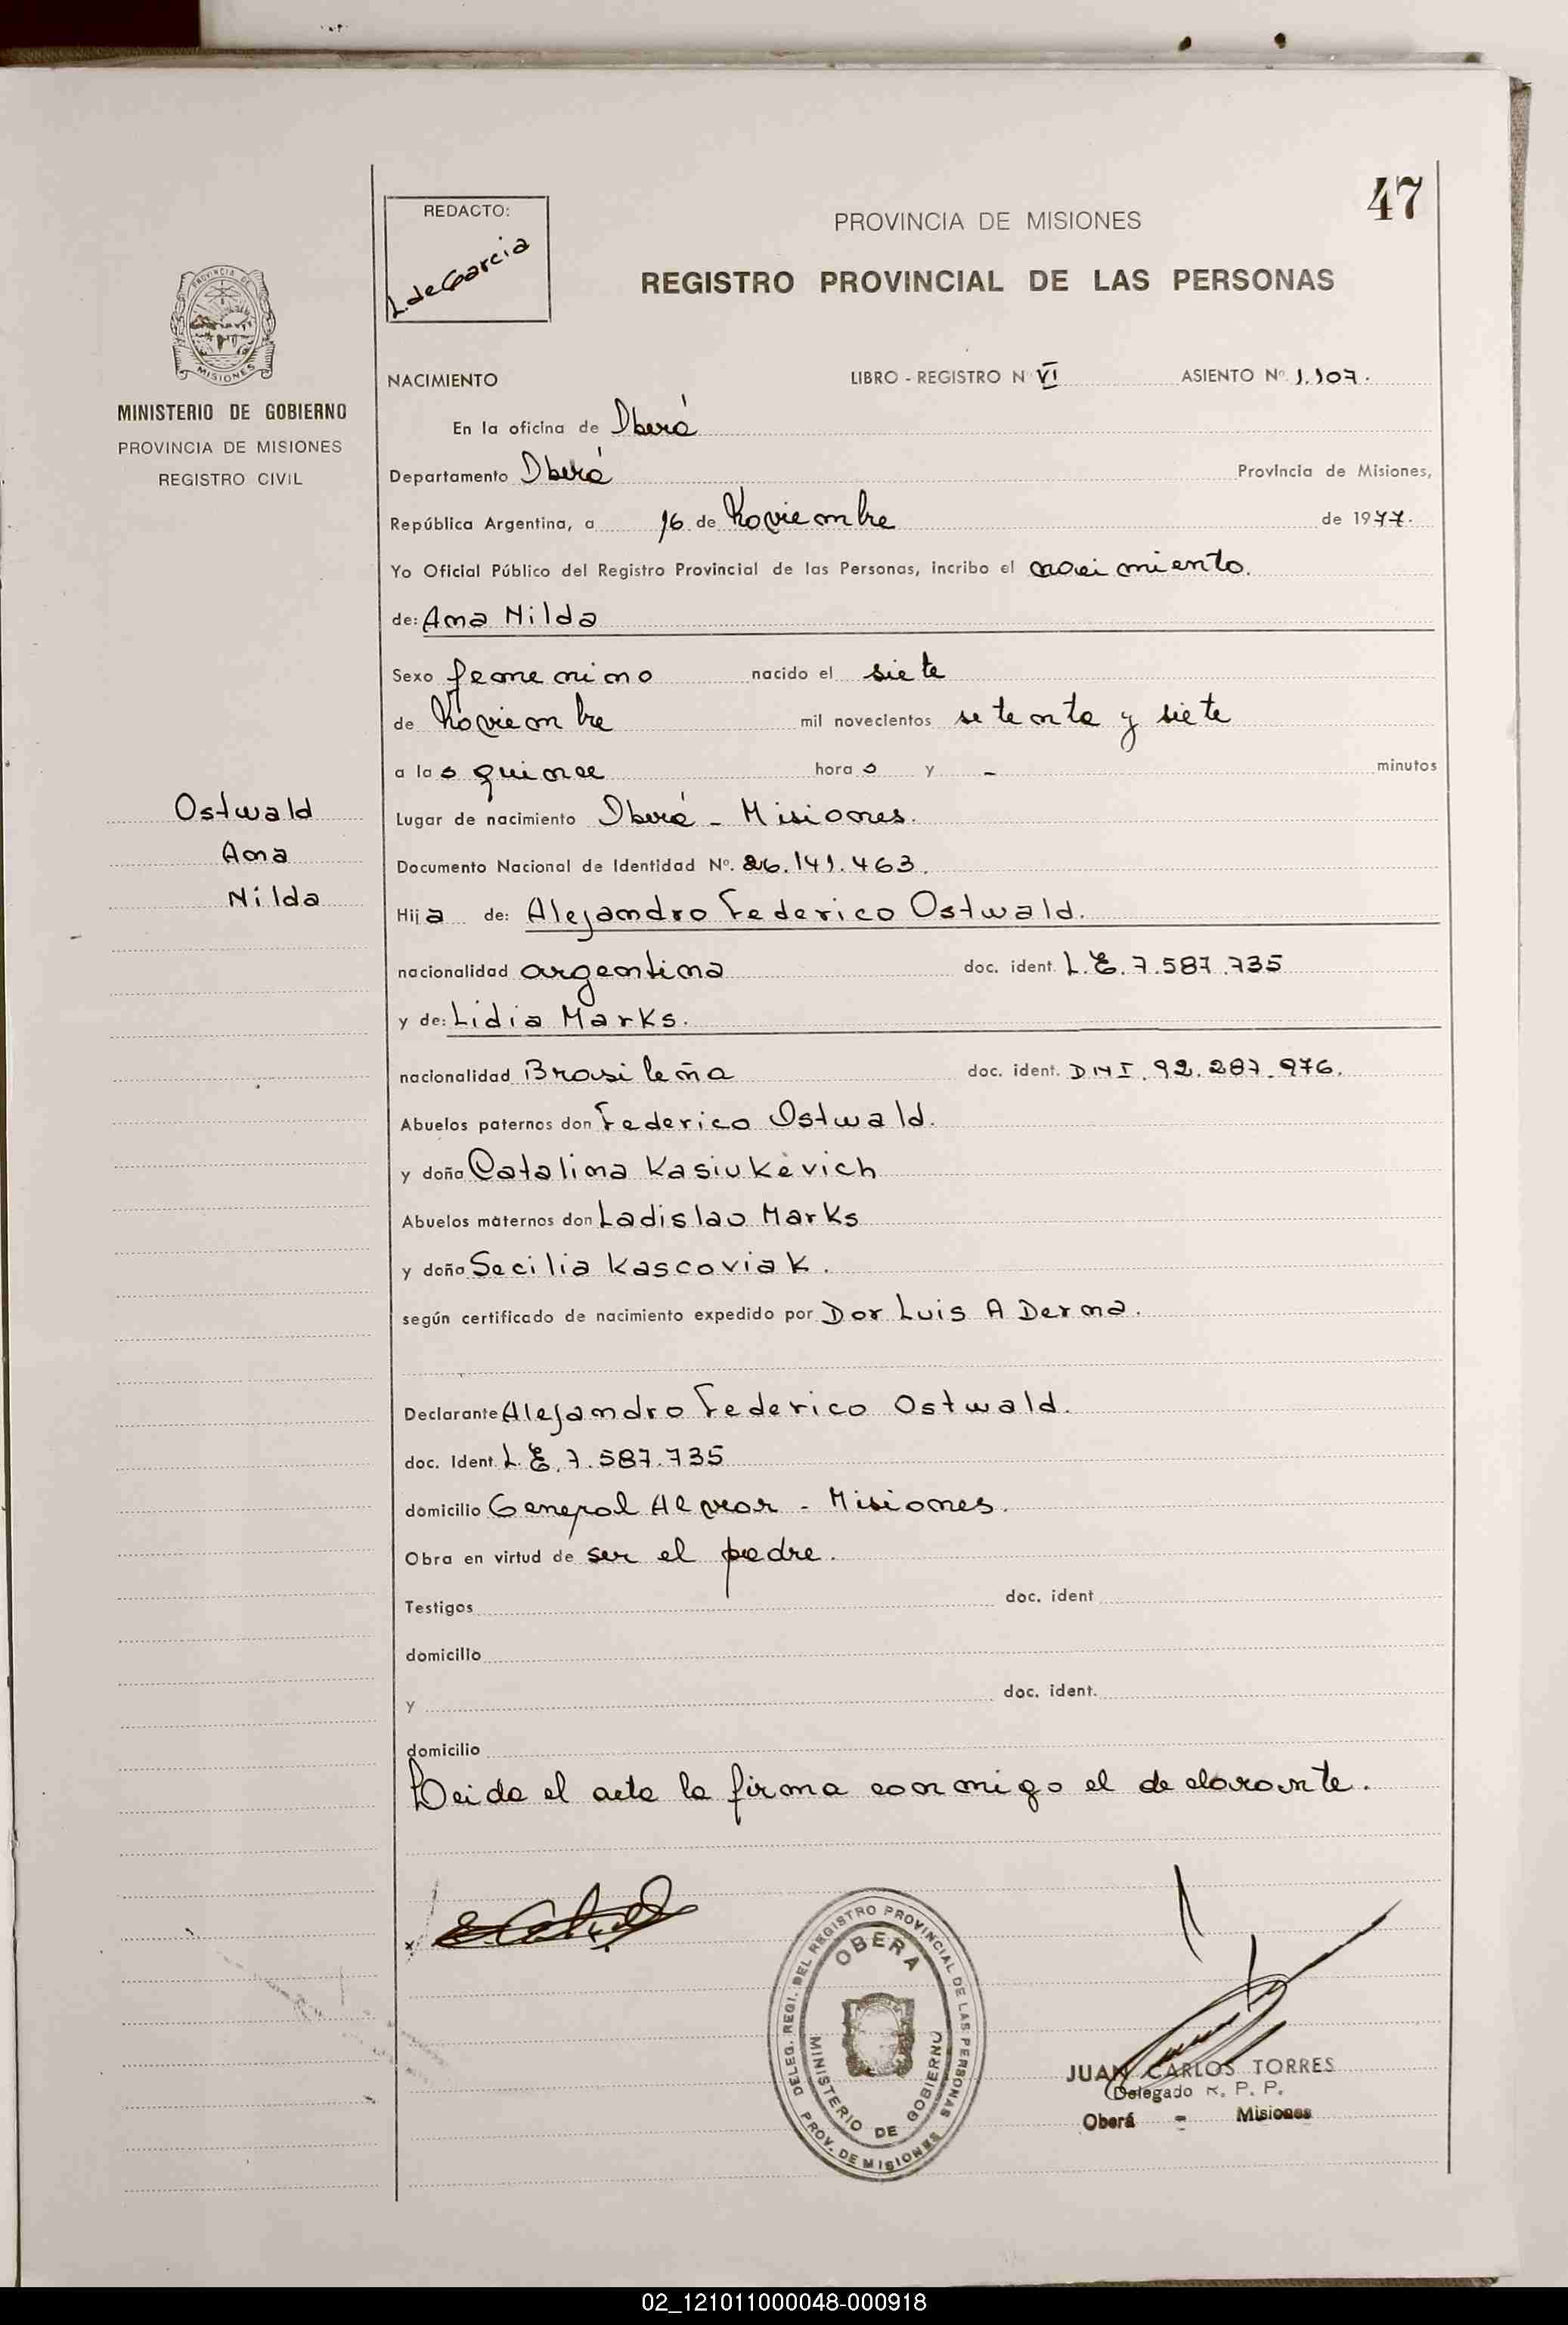 47
REDACTO:
L. de Garcia
PROVINCIA DE MISIONES
REGISTRO PROVINCIAL DE LAS PERSONAS
PROVINCIA DE
MISIONES
MINISTERIO DE GOBIERNO
PROVINCIA DE MISIONES
REGISTRO CIVIL
NACIMIENTO LIBRO - REGISTRO N VI ASIENTO Nº 1.107.
En la oficina de Oberá
Departamento Oberá Provincia de Misiones,
República Argentina, a 16 de Noviembre de 1977.
Yo Oficial Público del Registro Provincial de las Personas, incribo el nacimiento.
de: Ana Nilda
Sexo femenino nacido el siete
de Noviembre mil novecientos setenta y siete
a las quince horas y - minutos
Ostwald
Ana
Nilda
Lugar de nacimiento Oberá - Misiones.
Documento Nacional de Identidad Nº. 26.141.463.
Hija de: Alejandro Federico Ostwald.
nacionalidad argentina doc. ident. L.E. 7.587.735
y de: Lidia Marks.
nacionalidad Brasileña doc. ident. DNI. 92.287.976.
Abuelos paternos don Federico Ostwald.
y doña Catalina Kasiukevich
Abuelos maternos don Ladislao Marks
y doña Secilia Kascoviak.
según certificado de nacimiento expedido por Dor Luis A Derna.
Declarante Alejandro Federico Ostwald.
doc. Ident. L.E. 7.587.735
domicilio General Alvear - Misiones.
Obra en virtud de ser el padre.
Testigos doc. ident
domicilio
y doc. ident.
domicilio
Leida el acta la firma conmigo el declarante.
DELEG. REGI. DEL REGISTRO PROVINCIAL DE LAS PERSONAS
PROV. DE MISIONES
OBERA
MINISTERIO DE GOBIERNO
JUAN CARLOS TORRES
Delegado R. P. P.
Oberá - Misiones
02_121011000048-000918